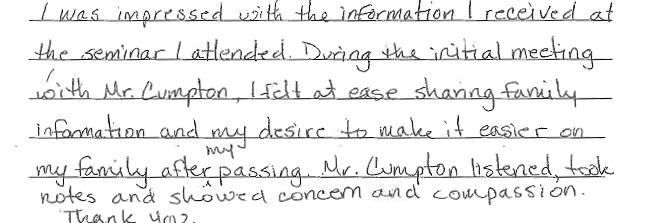 I was impressed with the information I received at
the seminar I attended. During the initial meeting
with Mr. Cumpton, I felt at ease sharing family
information and my desire to make it easier on
my
my family after passing. Mr. Cumpton listened, took
notes and showed concern and compassion.
Thank you.